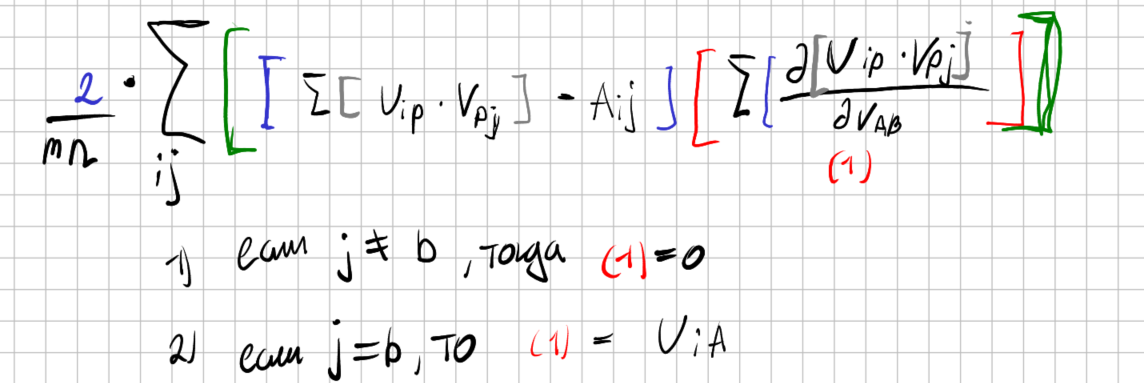 2/mn · Σ_ij [ [ Σ [ U_ip · V_pj ] - A_ij ] [ Σ [ ∂[U_ip · V_pj] / ∂V_AB ] ] ]
(1)
1) если j ≠ b, тогда (1) = 0
2) если j = b, то (1) = U_iA